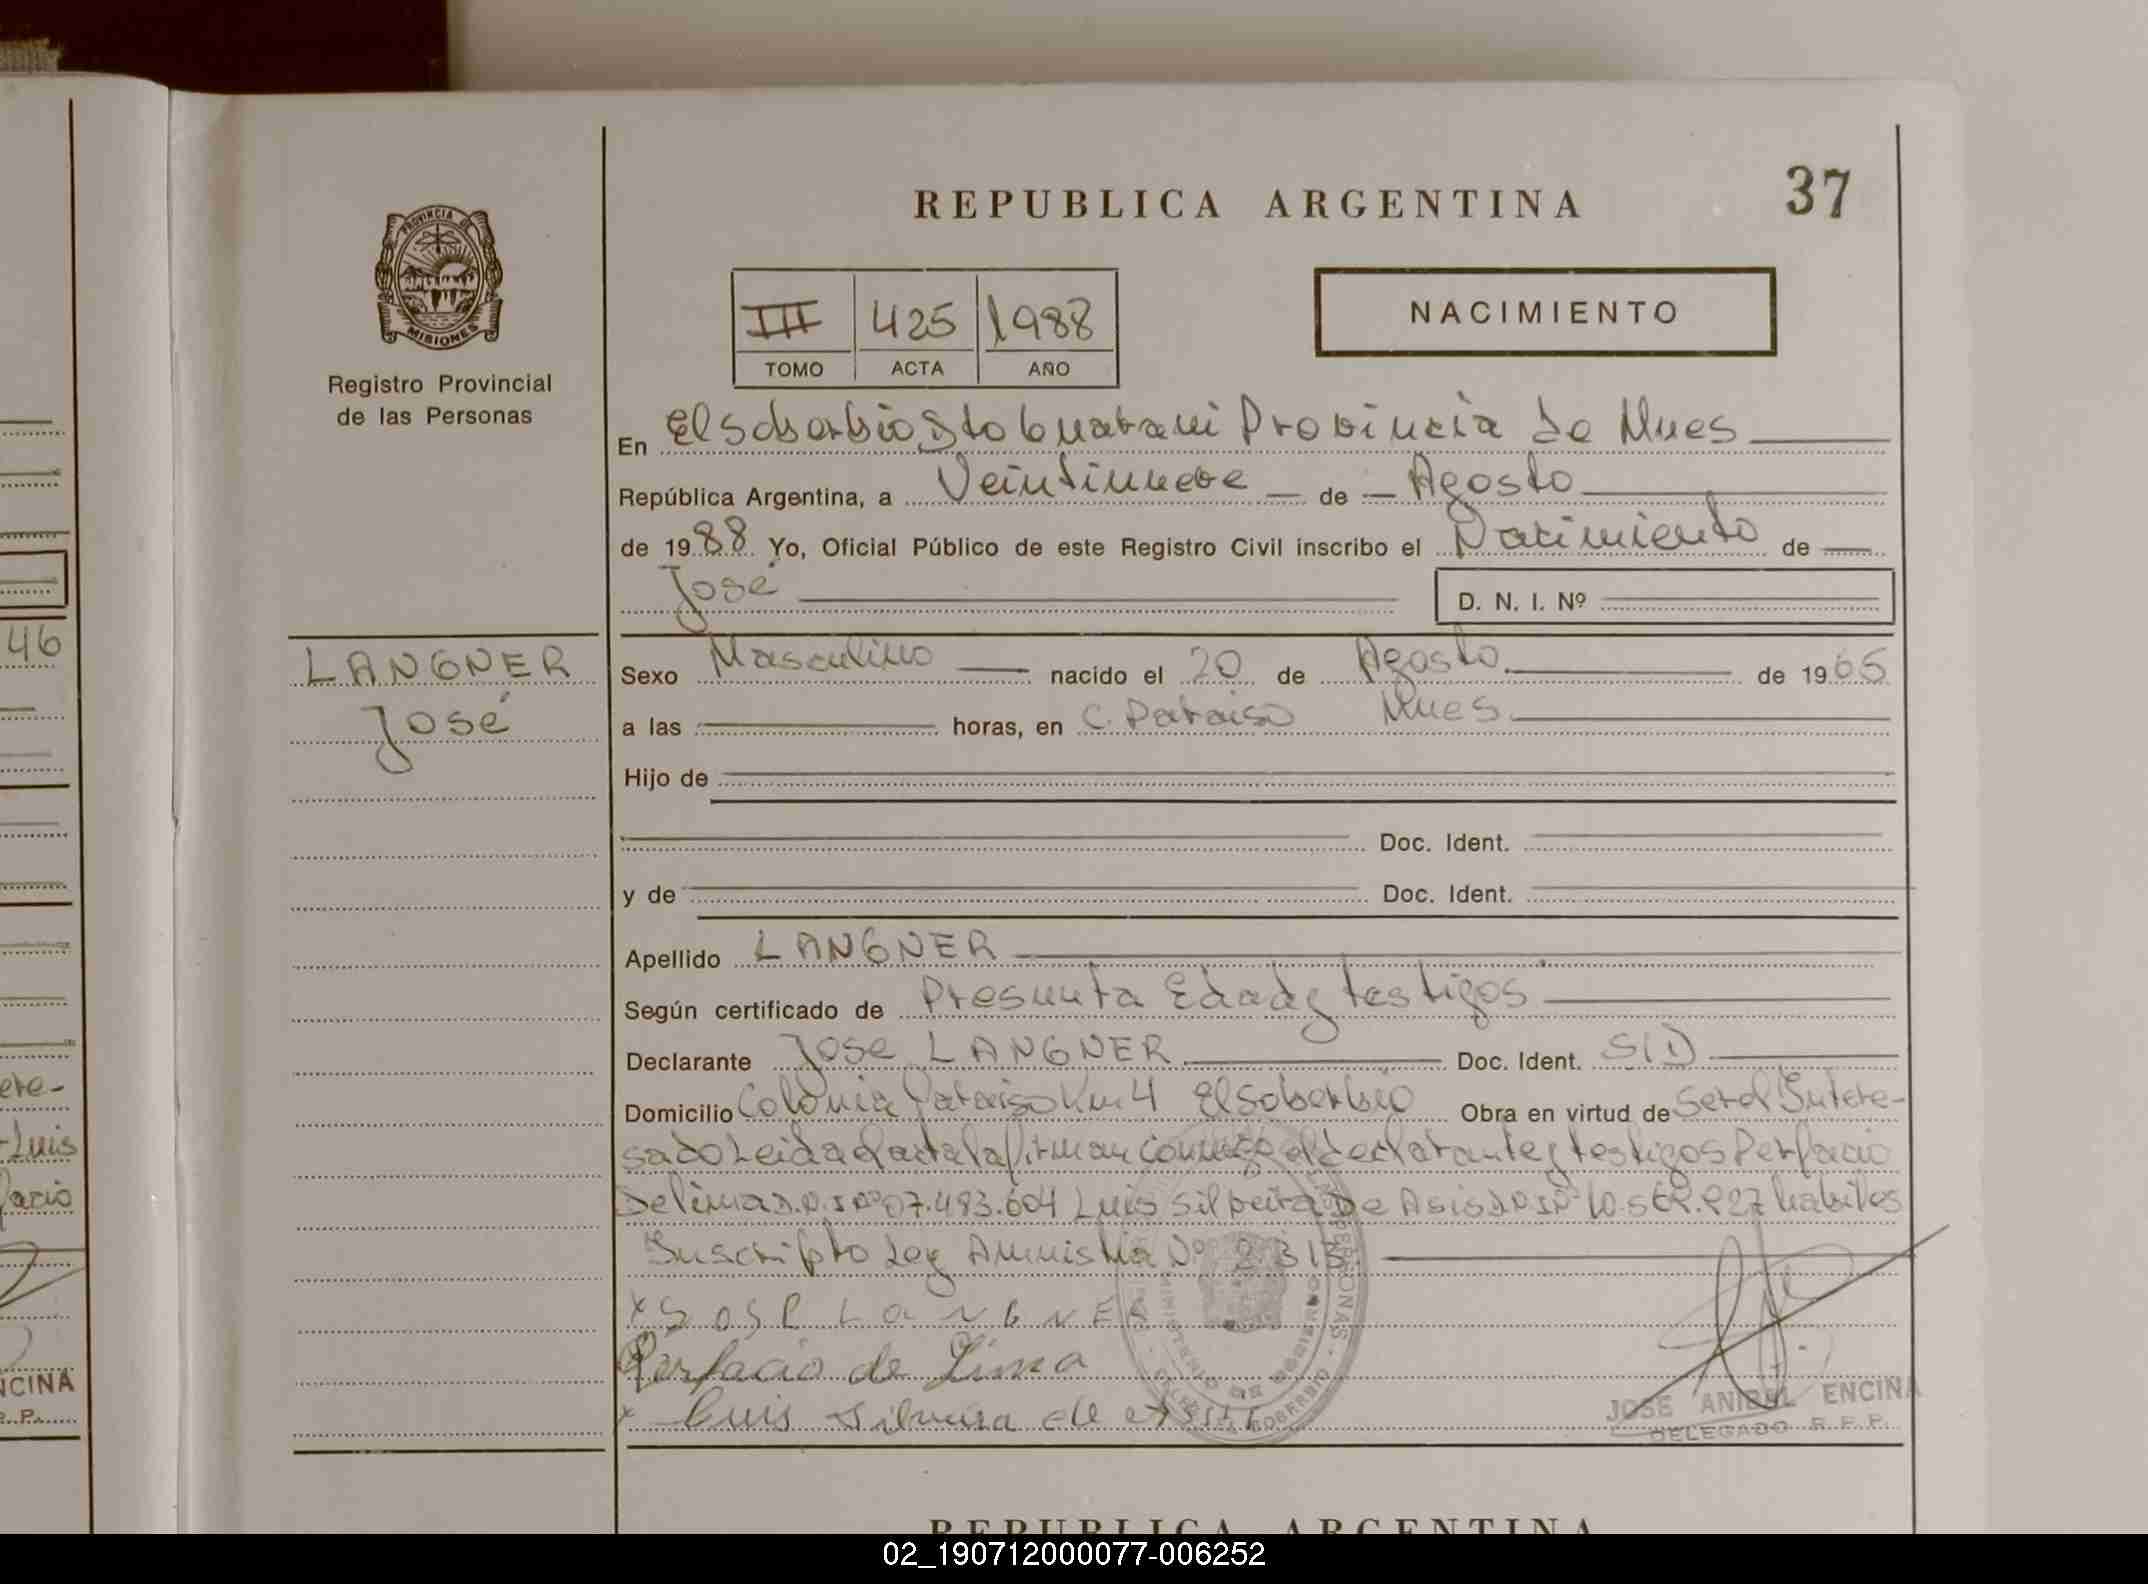 REPUBLICA ARGENTINA
37
PROVINCIA DE
MISIONES
Registro Provincial
de las Personas
III 425 1988
TOMO ACTA AÑO
NACIMIENTO
En El Soberbio Gto Guarani Provincia de Mnes
República Argentina, a Veintinueve de Agosto
de 1988 Yo, Oficial Público de este Registro Civil inscribo el Nacimiento de
José
D. N. I. Nº
46
LANGNER
José
Sexo Masculino nacido el 20 de Agosto de 1965
a las horas, en C. Paraiso Mnes
Hijo de
Doc. Ident.
y de Doc. Ident.
Apellido LANGNER
Según certificado de Presunta Edad y testigos
Declarante Jose LANGNER Doc. Ident. S/D
Domicilio Colonia Paraiso Km 4 El soberbio Obra en virtud de ser el Intere-
sado Leida el acta la firman conmigo el declarante y testigos Perfacio
De lima D.N.I Nº 07.493.604 Luis Silveira De Asis D.N.I Nº habiles
Suscripto Ley Amnistia Nº
x JOSE LANGNER
Perfacio de Lima
x Luis Silveira de Assis
JOSE ANIBAL ENCINA
DELEGADO R.P.P.
MINISTERIO DE GOBIERNO
PERSONAS
SOBERBIO
Luis
facio
NCINA
REPUBLICA ARGENTINA
02_190712000077-006252